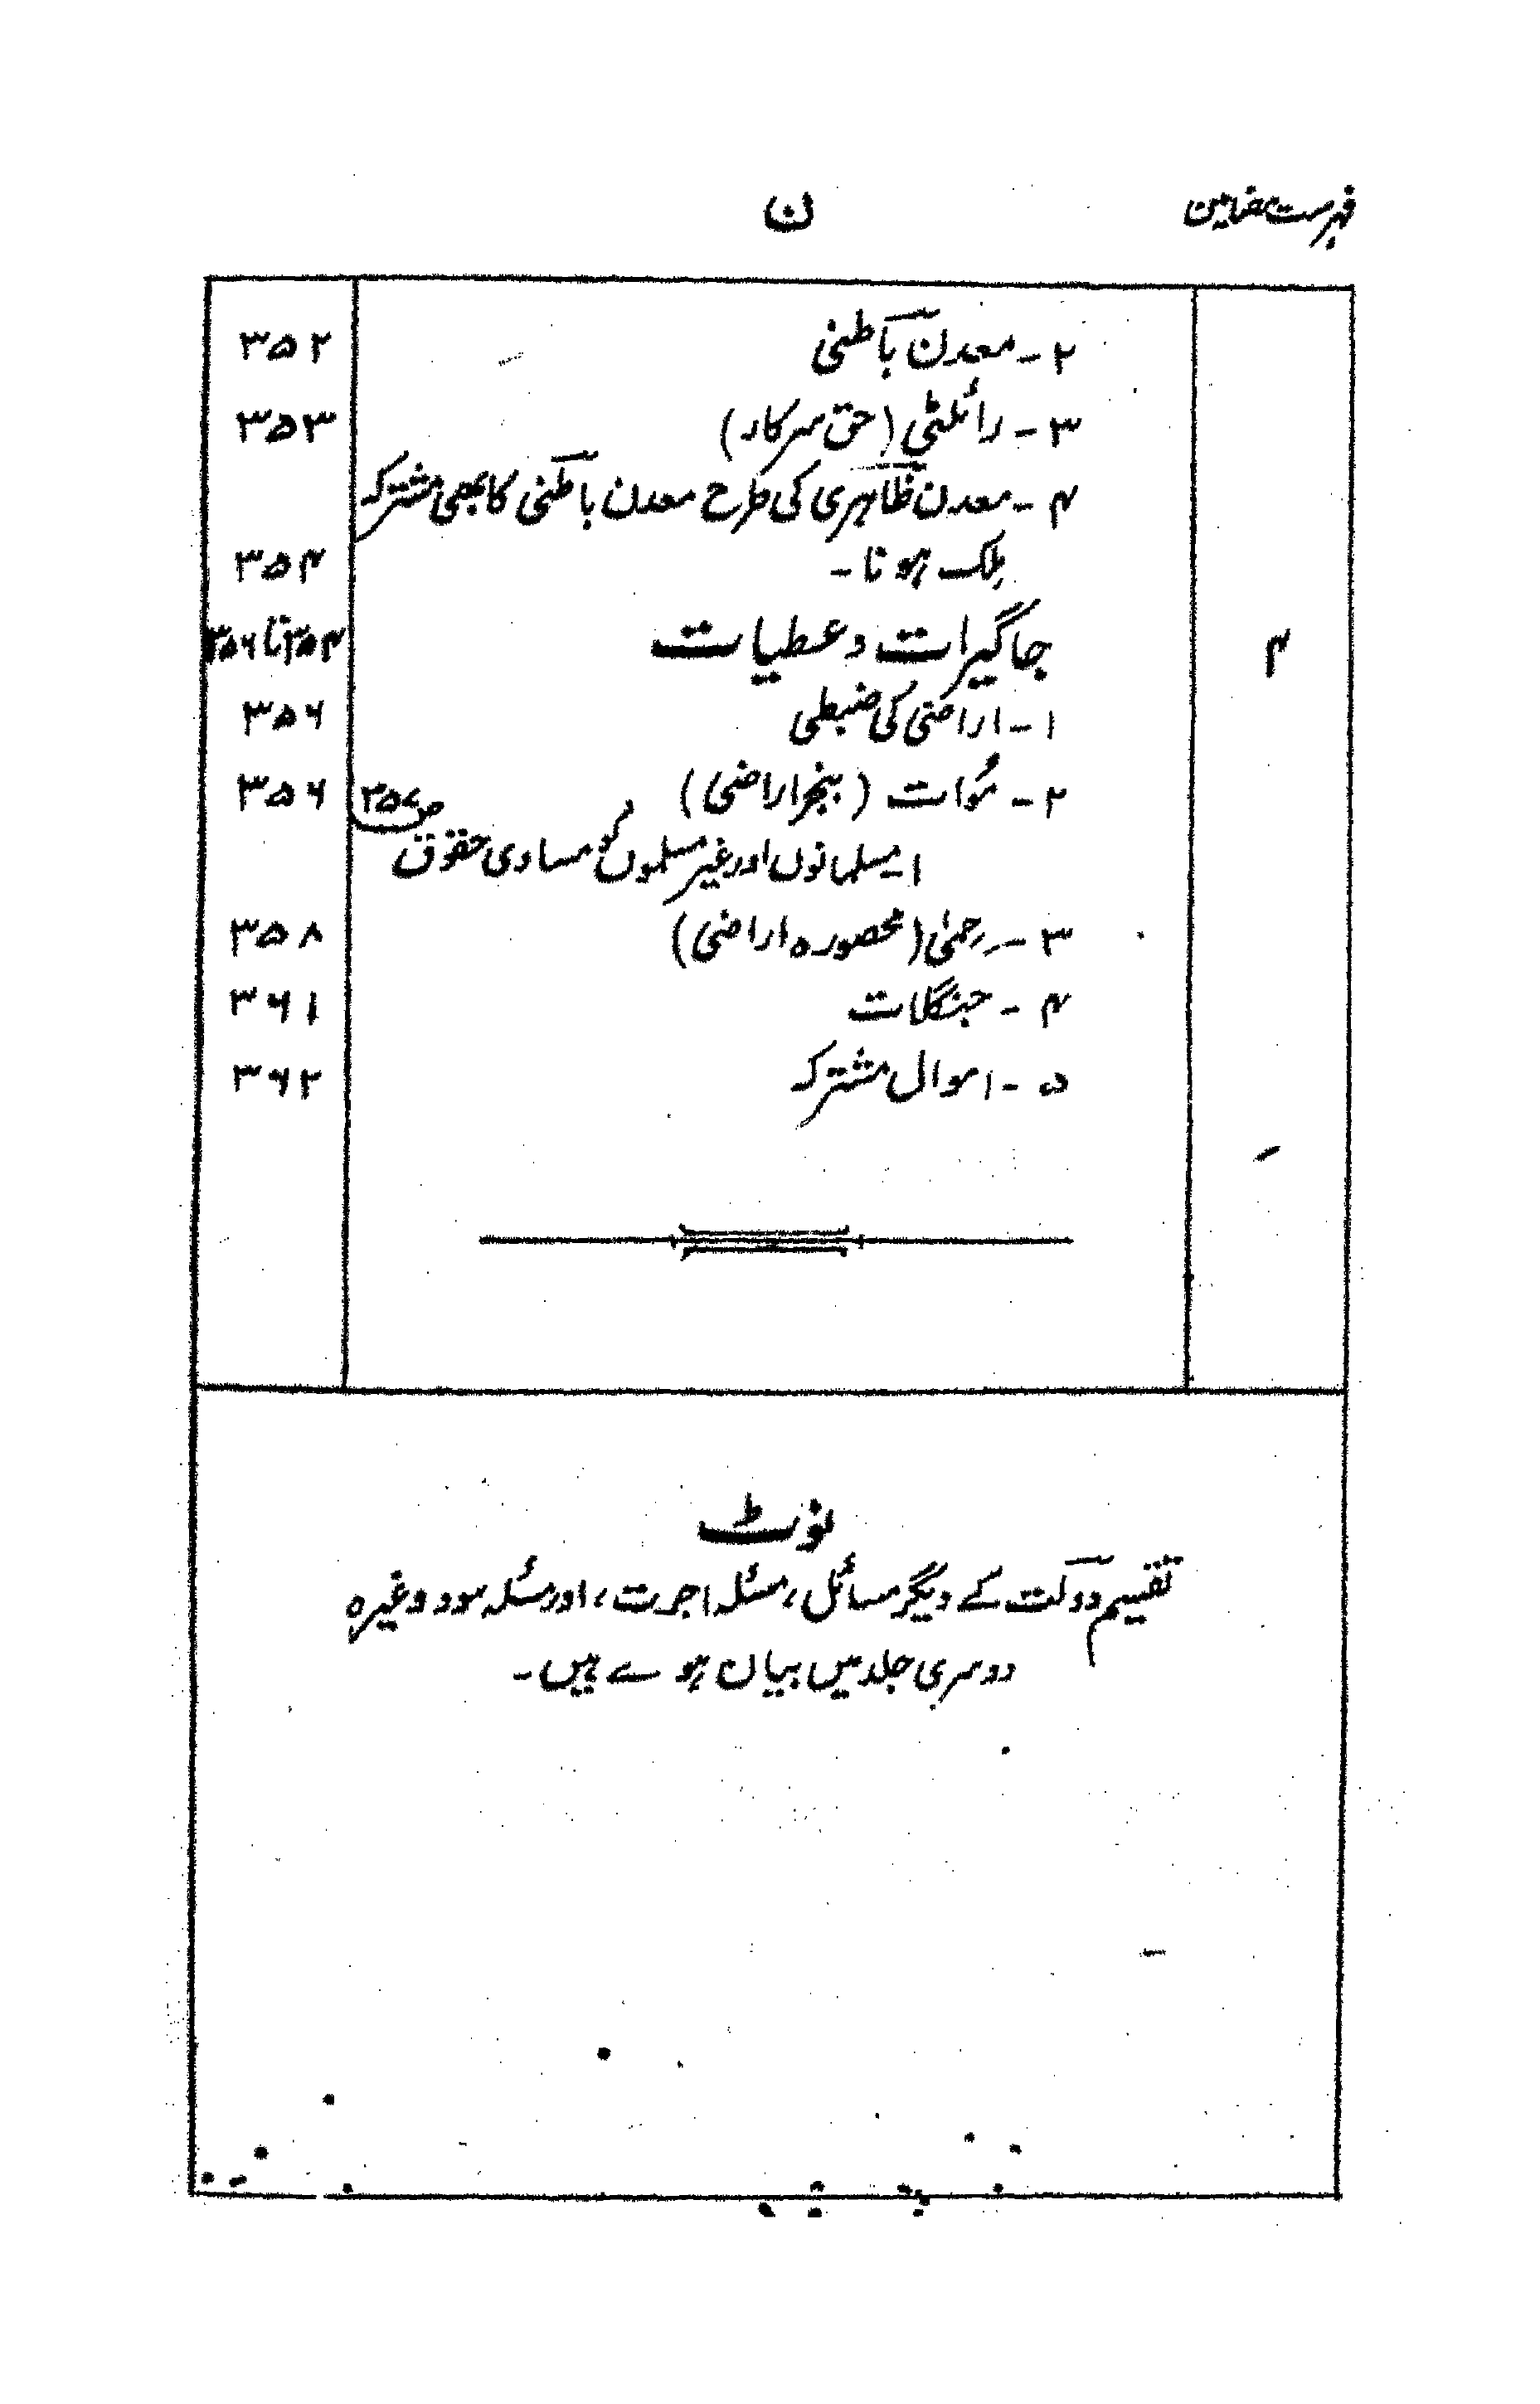 فہرست مضامین
ن
۲ - معدن باطنی ۳۵۲
۳ - رائلٹی (حق سرکار) ۳۵۳
۴ - معدن ظاہری کی طرح معدن باطنی کا بھی مشترکہ
ملک ہونا - ۳۵۴
۴ جاگیرات و عطیات ۳۵۴ تا ۳۵۶
۱ - اراضی کی ضبطی ۳۵۶
۲ - مُوات (بنجر اراضی) ۳۵۶
ص ۳۵۷
۱ - مسلمانوں اور غیر مسلموں کو مساوی حقوق
۳ - حمیٰ (محصورہ اراضی) ۳۵۸
۴ - جنگلات ۳۶۱
۵ - اموال مشترکہ ۳۶۲
نوٹ
تقسیم دولت کے دیگر مسائل، مسئلہ اجرت، اور مسئلہ سود وغیرہ
دوسری جلد میں بیان ہوے ہیں -